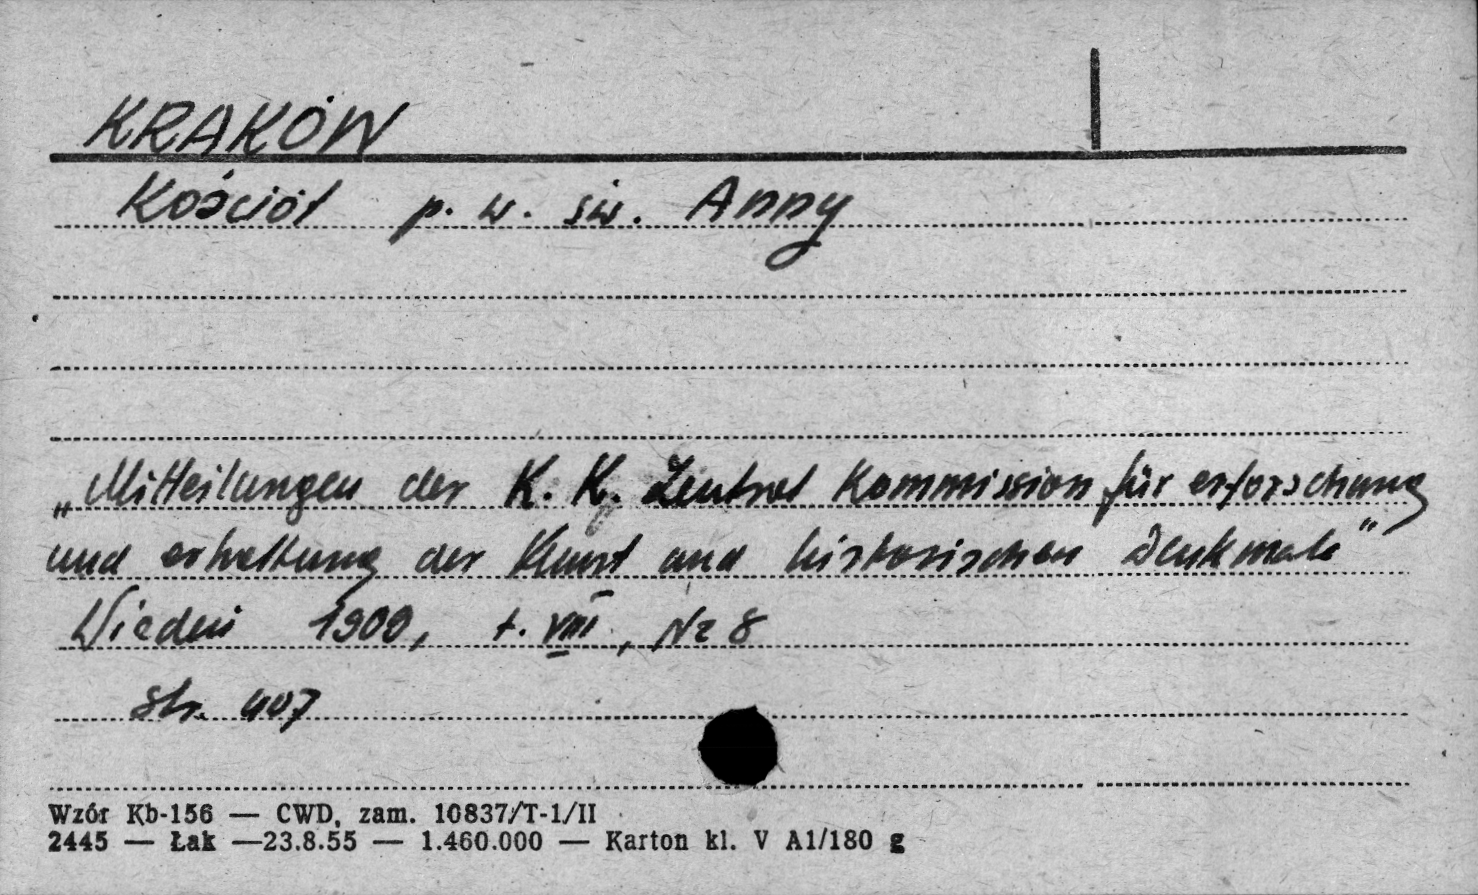 KRAKÓW
Kościół p. w. św. Anny
„Mitteilungen der K. K. Zentral Kommission für erforschung
und erhaltung der Kunst und historischen Denkmale"
Wiedeń 1900, t. VIII, Nr 8
str. 407
Wzór Kb-156 — CWD, zam. 10837/T-1/II
2445 — Łak —23.8.55 — 1.460.000 — Karton kl. V A1/180 g